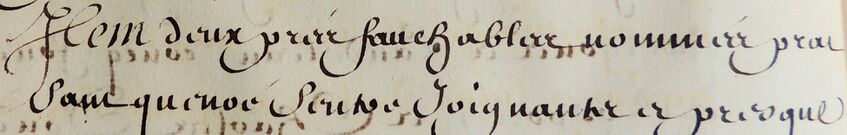 Item deux prés fauchables nommés prat
sant quenoé Scutoe Joignantz et presque